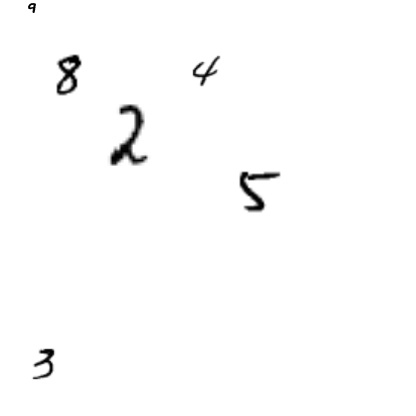 9
8 4
2
5
3